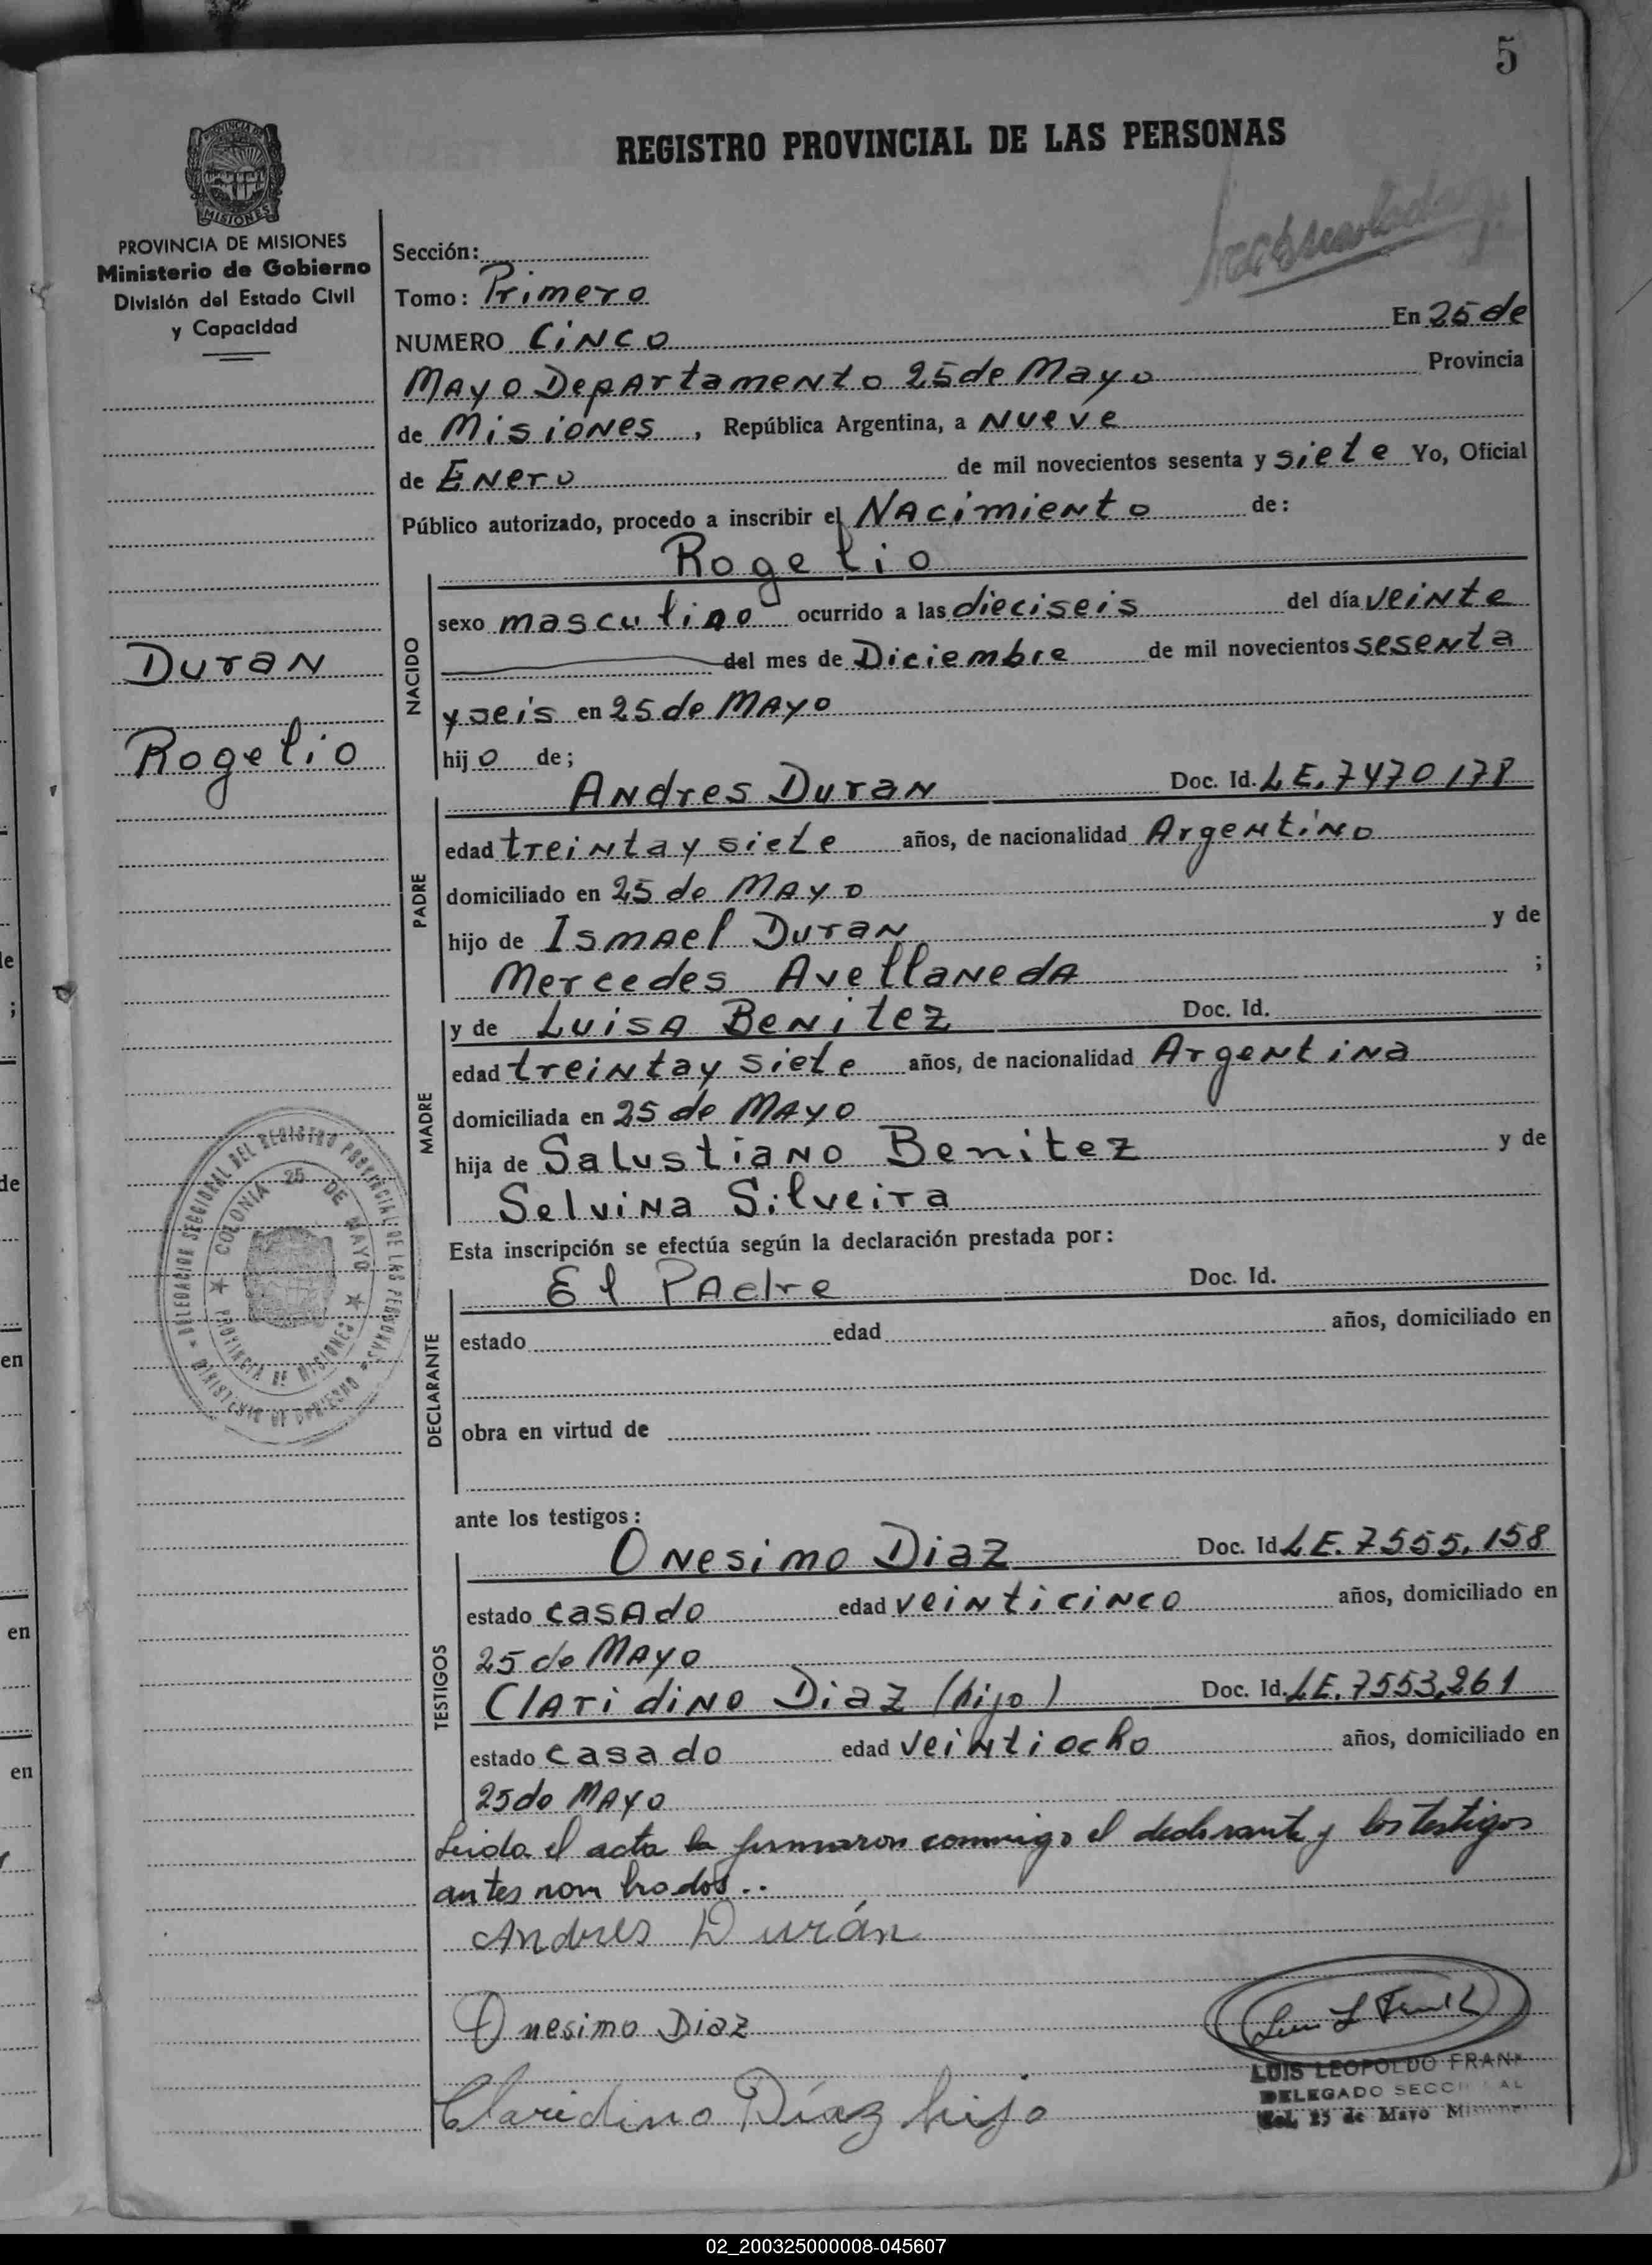 5
REGISTRO PROVINCIAL DE LAS PERSONAS
PROVINCIA DE MISIONES
MISIONES
PROVINCIA DE MISIONES
Ministerio de Gobierno
División del Estado Civil
y Capacidad
Duran
Rogelio
DELEGACION SECCIONAL DEL REGISTRO PROVINCIAL DE LAS PERSONAS
MINISTERIO DE GOBIERNO
COLONIA 25 DE MAYO
PROVINCIA DE MISIONES
Sección:
Tomo: Primero
NUMERO Cinco En 25 de
Mayo Departamento 25 de Mayo Provincia
de Misiones, República Argentina, a Nueve
de Enero de mil novecientos sesenta y siete Yo, Oficial
Público autorizado, procedo a inscribir el Nacimiento de:
NACIDO
Rogelio
sexo masculino ocurrido a las dieciseis del día veinte
del mes de Diciembre de mil novecientos sesenta
y seis en 25 de Mayo
hijo de;
PADRE
Andres Duran Doc. Id. L.E. 7470178
edad treinta y siete años, de nacionalidad Argentino
domiciliado en 25 de Mayo
hijo de Ismael Duran y de
Mercedes Avellaneda ;
MADRE
y de Luisa Benitez Doc. Id.
edad treinta y siete años, de nacionalidad Argentina
domiciliada en 25 de Mayo
hija de Salustiano Benitez y de
Selvina Silveira
Esta inscripción se efectúa según la declaración prestada por:
DECLARANTE
El Padre Doc. Id.
estado edad años, domiciliado en
obra en virtud de
ante los testigos:
TESTIGOS
Onesimo Diaz Doc. Id. L.E. 7555.158
estado casado edad veinticinco años, domiciliado en
25 de Mayo
Claridino Diaz (hijo) Doc. Id. L.E. 7553.261
estado casado edad veintiocho años, domiciliado en
25 de Mayo
Leida el acta la firmaron conmigo el declarante y los testigos
antes nombrados..
Andres Durán
Onesimo Diaz
Claridino Díaz hijo
Luis L Frank
LUIS LEOPOLDO FRANK
DELEGADO SECCIONAL
Col. 25 de Mayo Misiones
02_200325000008-045607